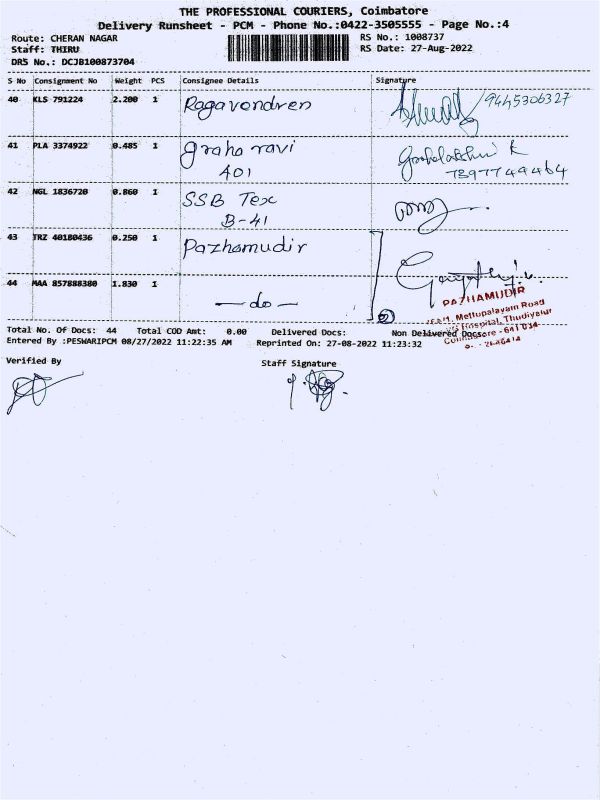 THE PROFESSIONAL COURIERS, Coimbatore
Delivery Runsheet - PCM - Phone No.:0422-3505555 - Page No.:4
Route: CHERAN NAGAR RS No.: 1008737
Staff: THIRU RS Date: 27-Aug-2022
DRS No.: DCJB100873704
S No Consignment No Weight PCS Consignee Details Signature
40 KLS 791224 2.200 1 Ragavendren 9445306327
41 PLA 3374922 0.485 1 graha ravi
A01 7397749464
42 NGL 1836720 0.860 1 SSB Tex
B-41
43 TRZ 40180436 0.250 1 Pazhamudir
44 MAA 857888380 1.830 1 - do -
PAZHAMUDIR
Mettupalayam Road
Hospital, Thudiyalur
Total No. Of Docs: 44 Total COD Amt: 0.00 Delivered Docs: Non Delivered Docs
Coimbatore - 641 034
Entered By :PESWARIPCM 08/27/2022 11:22:35 AM Reprinted On: 27-08-2022 11:23:32
Verified By Staff Signature